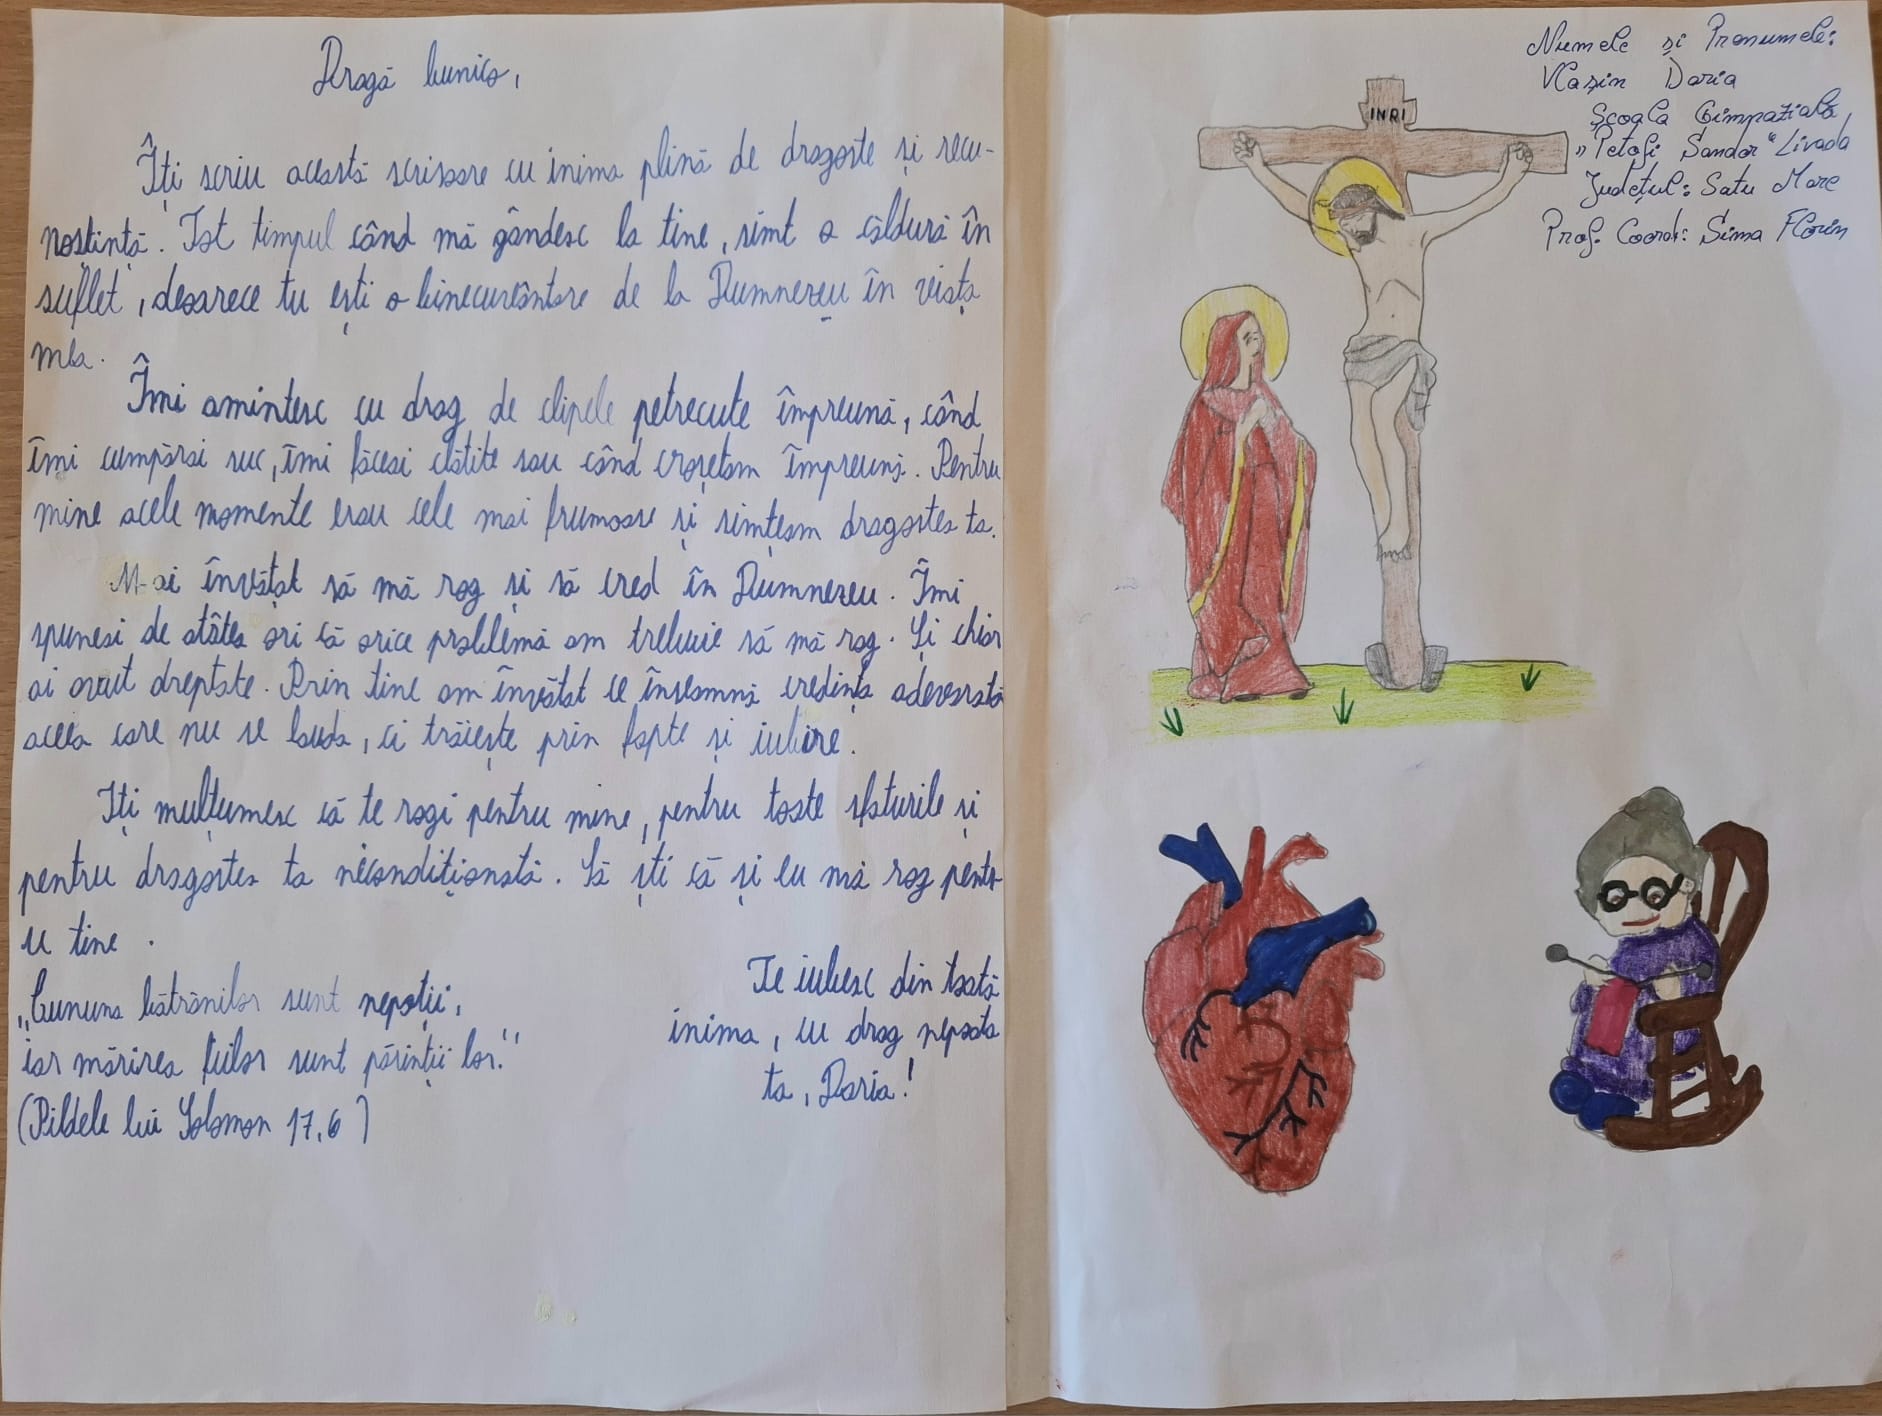 Dragă bunico,
Îți scriu această scrisoare cu inima plină de dragoste și recu-
noștință. Tot timpul când mă gândesc la tine, simt o căldură în
suflet, deoarece tu ești o binecuvântare de la Dumnezeu în viața
mea.
Îmi amintesc cu drag de clipele petrecute împreună, când
îmi cumpărai suc, îmi făceai clătite sau când croșetam împreună. Pentru
mine acele momente erau cele mai frumoase și simțeam dragostea ta.
M-ai învățat să mă rog și să cred în Dumnezeu. Îmi
spuneai de atâtea ori că orice problemă am trebuie să mă rog. Și chiar
ai avut dreptate. Prin tine am învățat ce înseamnă credința adevărată
aceea care nu se lauda, ci trăiește prin fapte și iubire.
Iți mulțumesc că te rogi pentru mine, pentru toate sfaturile și
pentru dragostea ta necondiționată. Să ști că și eu mă rog pentr-
u tine.
„Cununa bătrânilor sunt nepoții,
iar mărirea fiilor sunt părinții lor."
(Pildele lui Solomon 17,6)
Te iubesc din toată
inima, cu drag nepoata
ta, Daria!
Numele și Pronumele:
Vlașin Daria
Școala Gimnazială
„Petofi Sandor" Livada
Județul: Satu Mare
Prof. Coord: Sima Florin
INRI